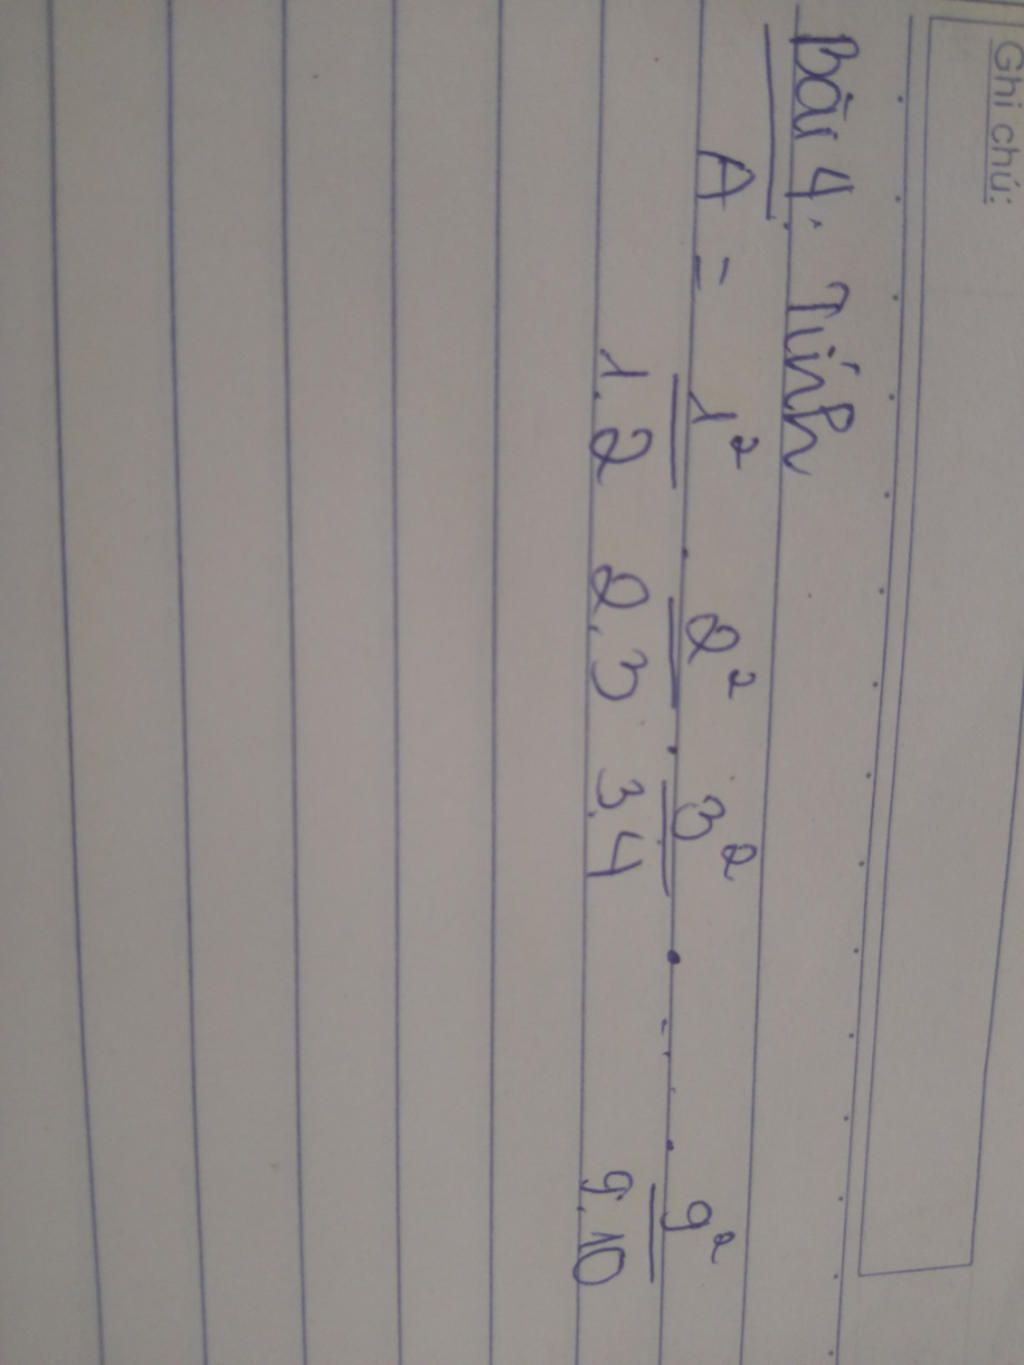 Ghi chú:
Bài 4. Tính
A = 1²/1.2 . 2²/2.3 . 3²/3.4 . ... . 9²/9.10